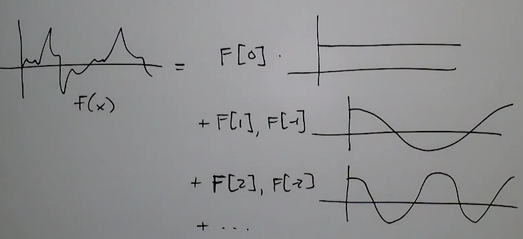 f(x)
= F[0] ·
+ F[1], F[-1]
+ F[2], F[-2]
+ ...